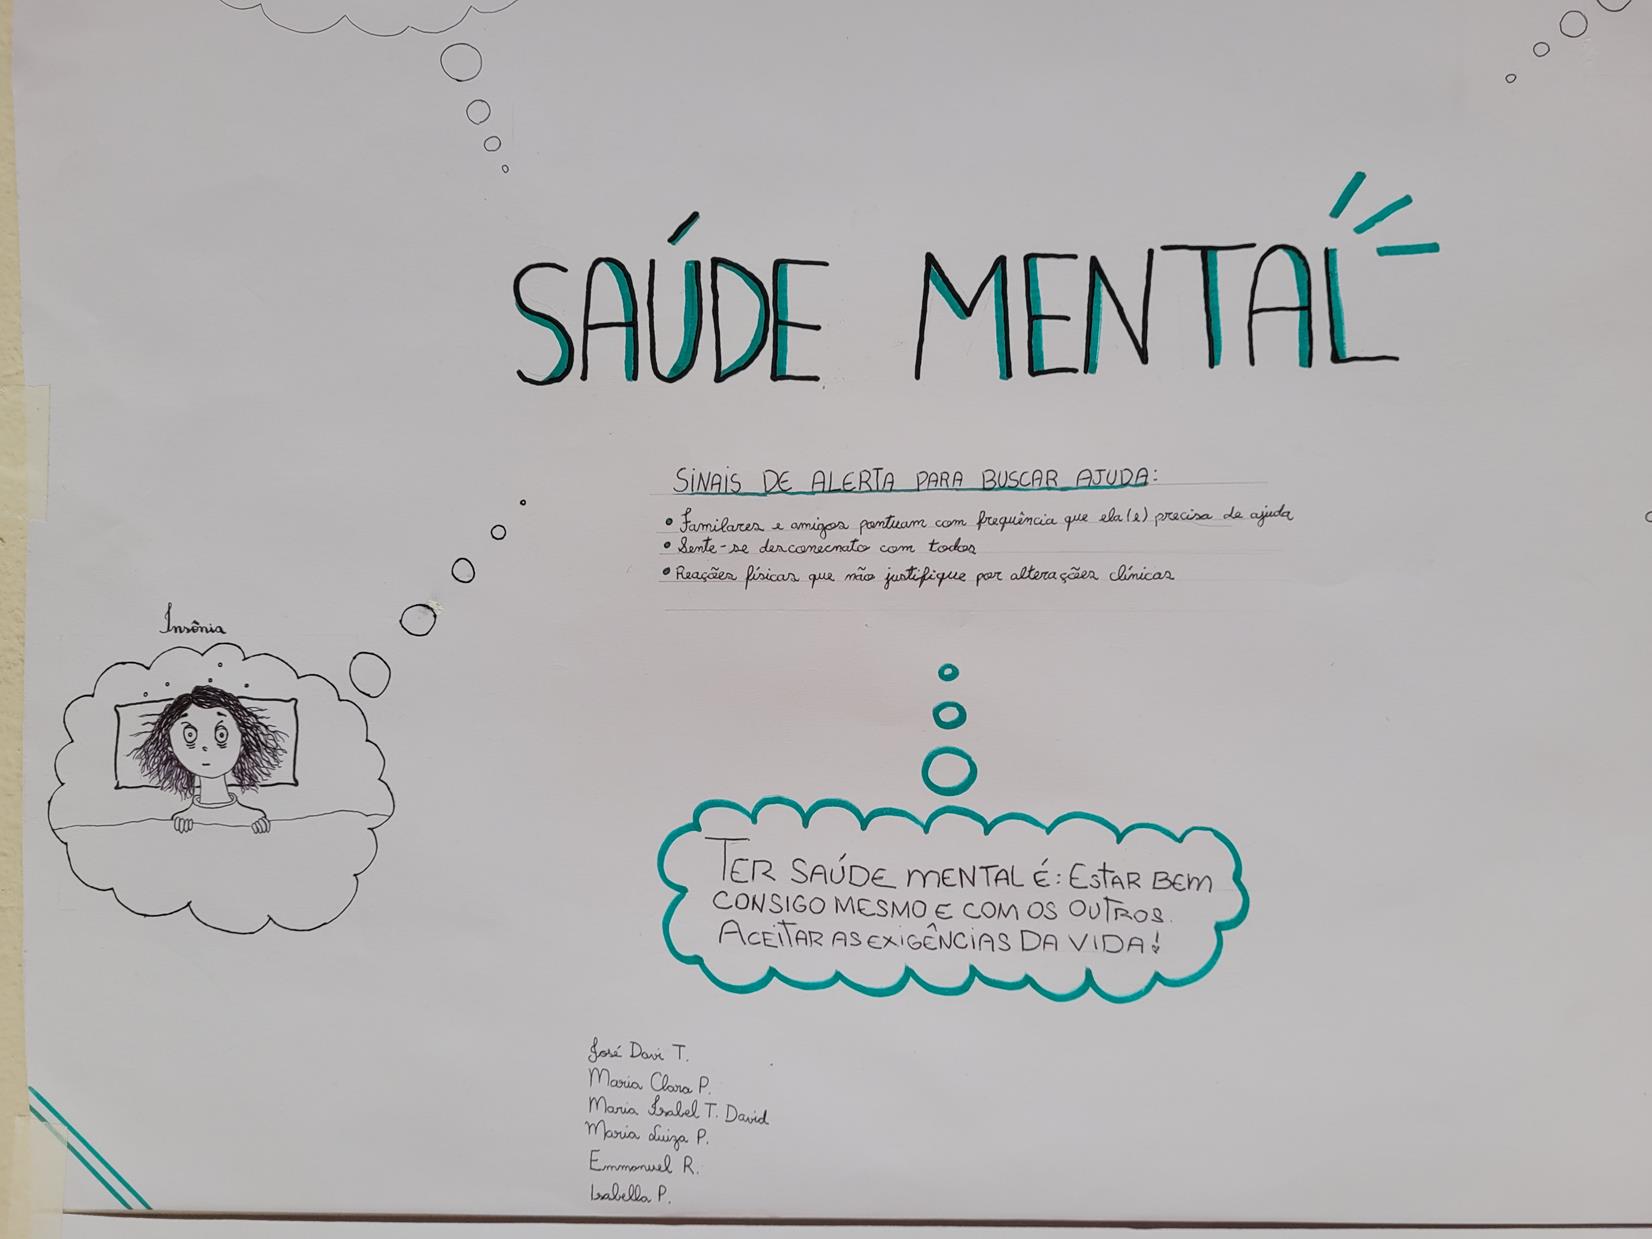 SAÚDE MENTAL
SINAIS DE ALERTA PARA BUSCAR AJUDA:
• Familares e amigos pontuam com frequência que ela(e) precisa de ajuda
• Sente-se desconecnato com todos
• Reações físicas que não justifique por alterações clínicas
Insônia
TER SAÚDE MENTAL É: ESTAR BEM
CONSIGO MESMO E COM OS OUTROS.
ACEITAR AS EXIGÊNCIAS DA VIDA!
José Davi T.
Maria Clara P.
Maria Isabel T. David
Maria Luiza P.
Emmanuel R.
Isabella P.